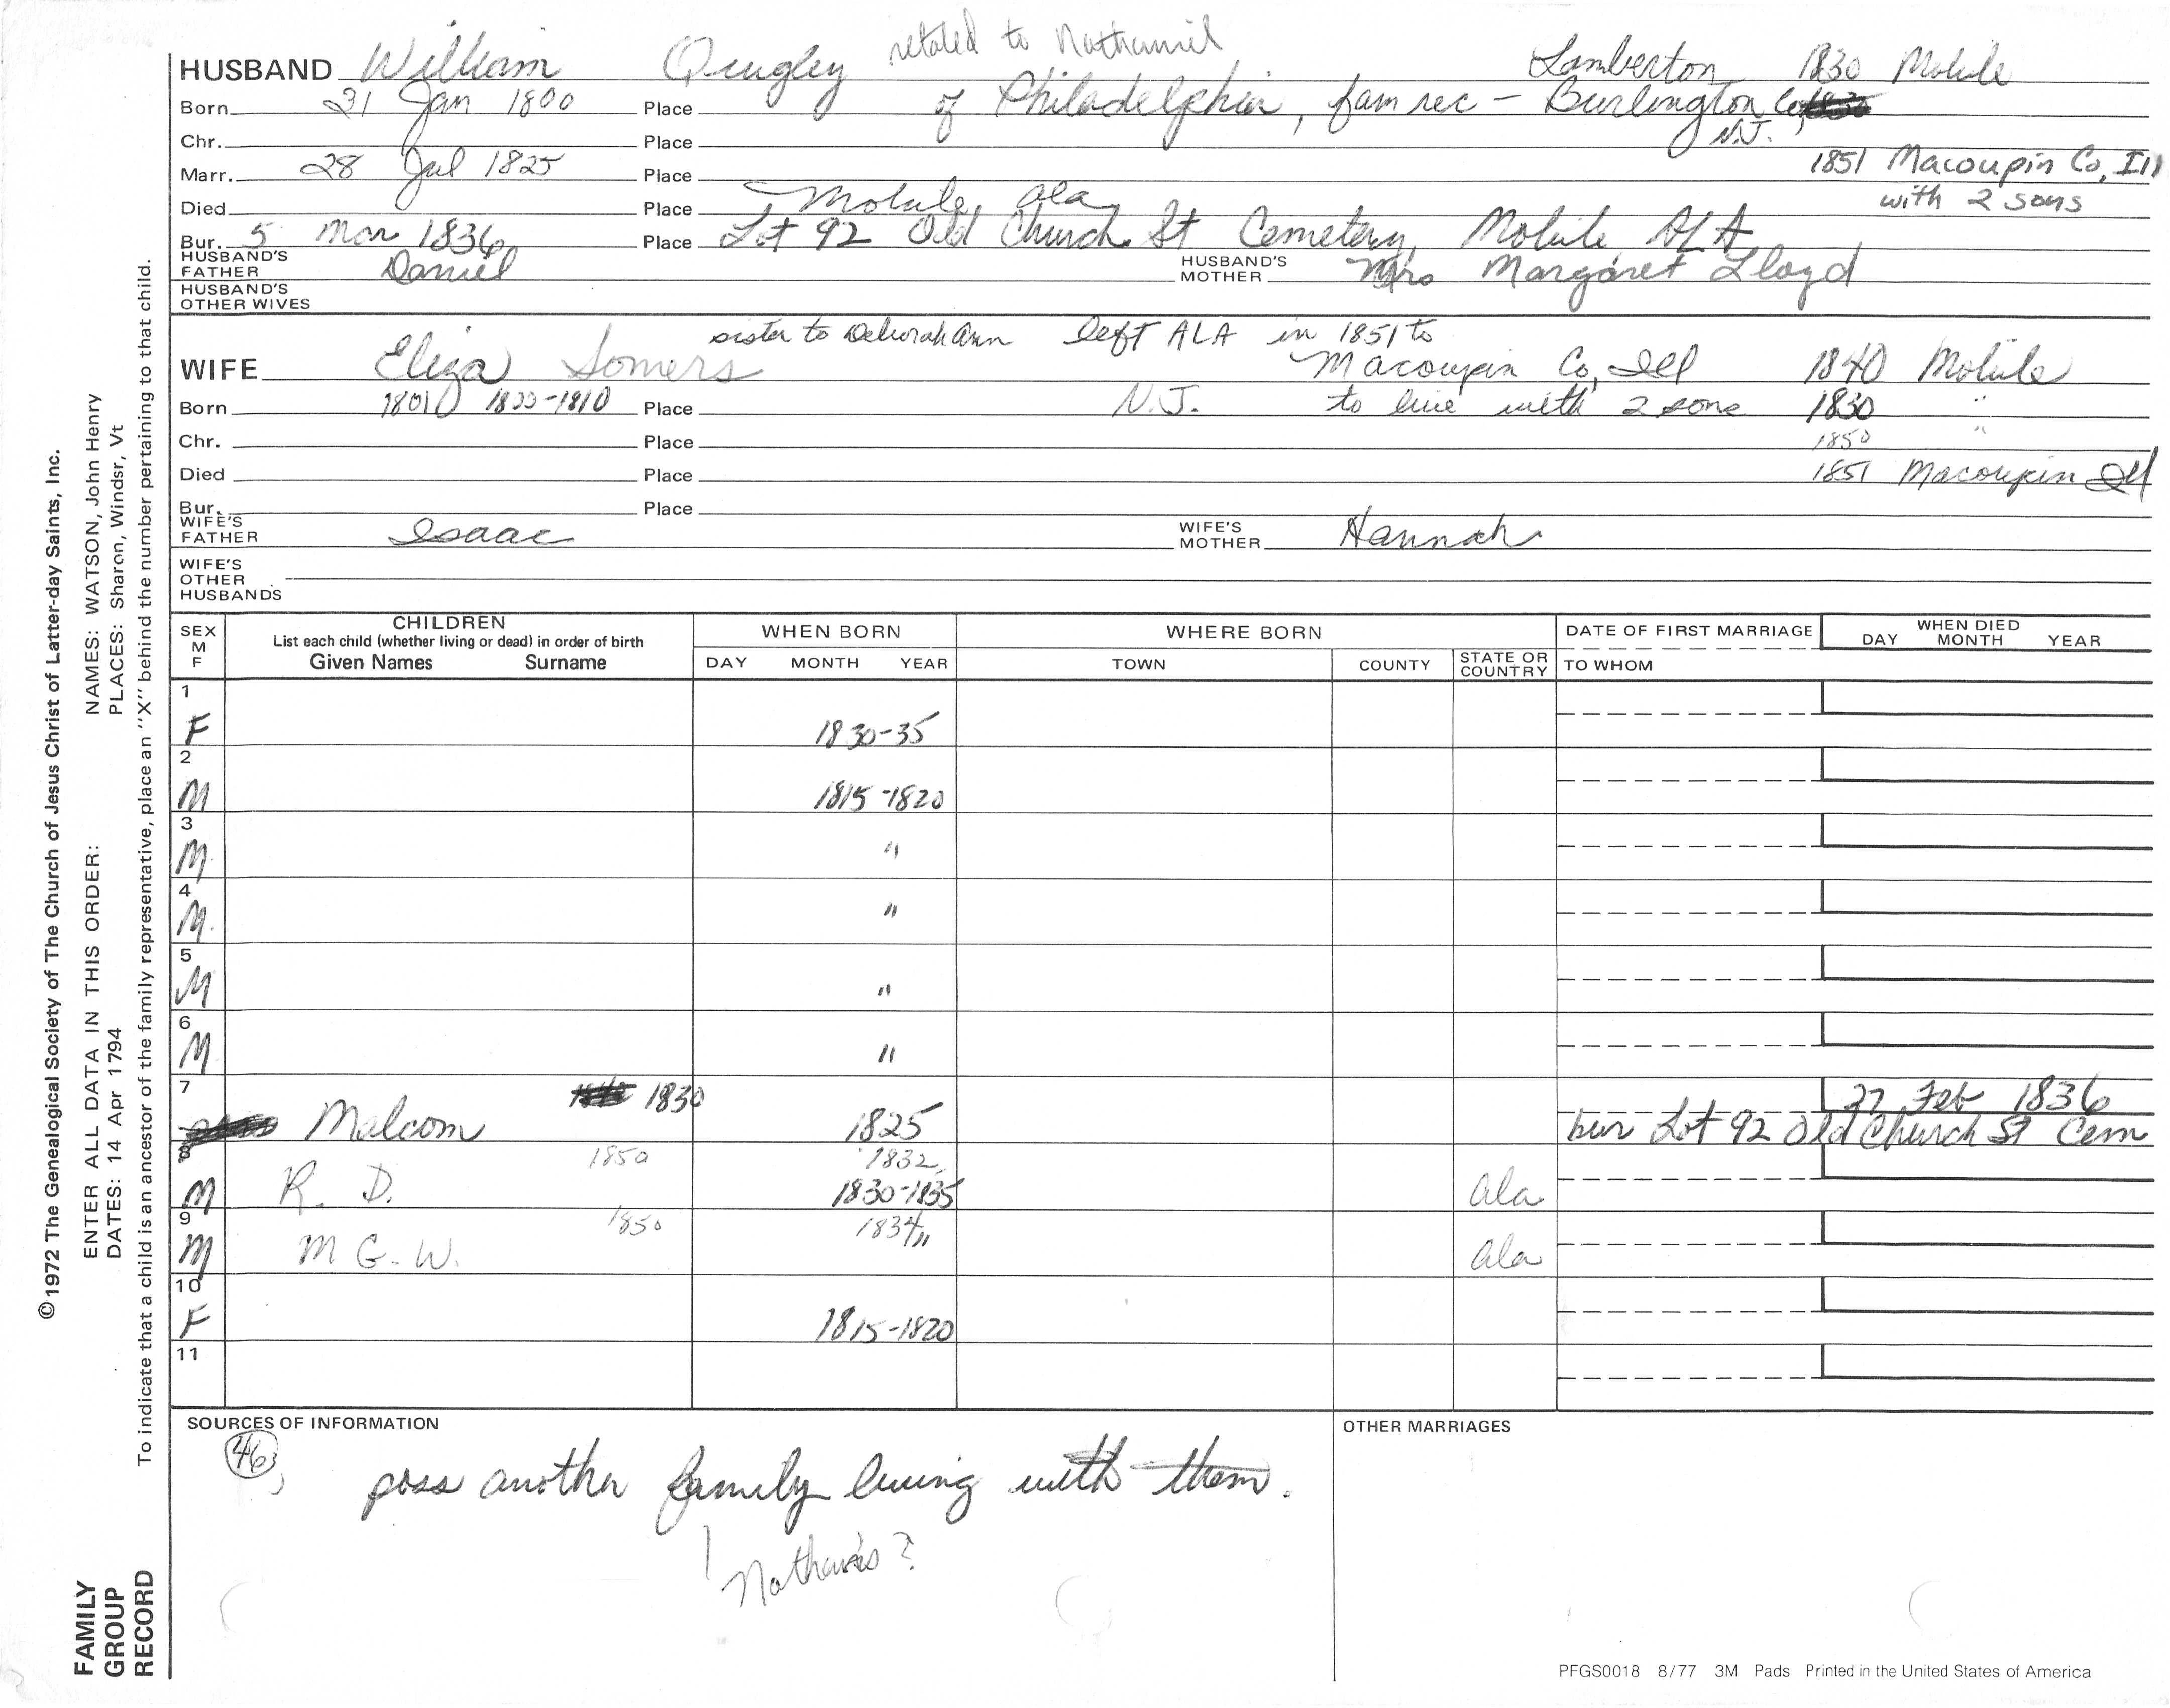 related to Nathaniel
HUSBAND William Quigley Lamberton 1830 Mobile
Born 31 Jan 1800 Place of Philadelphia, fam rec - Burlington Co,
N.J.
Chr. Place
Marr. 28 Jul 1825 Place 1851 Macoupin Co, Ill
with 2 sons
Died Place Mobile, Ala
Bur. 5 Mar 1836 Place Lot 92 Old Church St Cemetery, Mobile ALA
HUSBAND'S FATHER Daniel HUSBAND'S MOTHER Mrs Margaret Lloyd
HUSBAND'S OTHER WIVES
sister to Deborah Ann left ALA in 1851 to
WIFE Eliza Somers Macoupin Co, Ill 1840 Mobile
Born 1801 1800-1810 Place N.J. to live with 2 sons 1830 "
Chr. Place 1850 "
Died Place 1851 Macoupin Ill
Bur. Place
WIFE'S FATHER Isaac WIFE'S MOTHER Hannah
WIFE'S OTHER HUSBANDS
SEX M F CHILDREN WHEN BORN WHERE BORN DATE OF FIRST MARRIAGE WHEN DIED
List each child (whether living or dead) in order of birth DAY MONTH YEAR
Given Names Surname DAY MONTH YEAR TOWN COUNTY STATE OR COUNTRY TO WHOM
1
F 1830-35
2
M 1815-1820
3
M "
4
M. "
5
M "
6
M "
7 1830 27 Feb 1836
Malcom 1825 bur Lot 92 Old Church St Cem
8 1850 1832
M R. D. 1830-1835 Ala
9 1850 1834
M M G. W. " Ala
10
F 1815-1820
11
SOURCES OF INFORMATION OTHER MARRIAGES
46
poss another family living with them.
PFGS0018 8/77 3M Pads Printed in the United States of America
© 1972 The Genealogical Society of The Church of Jesus Christ of Latter-day Saints, Inc.
ENTER ALL DATA IN THIS ORDER: NAMES: WATSON, John Henry
DATES: 14 Apr 1794 PLACES: Sharon, Windsr, Vt
To indicate that a child is an ancestor of the family representative, place an "X" behind the number pertaining to that child.
FAMILY
GROUP
RECORD